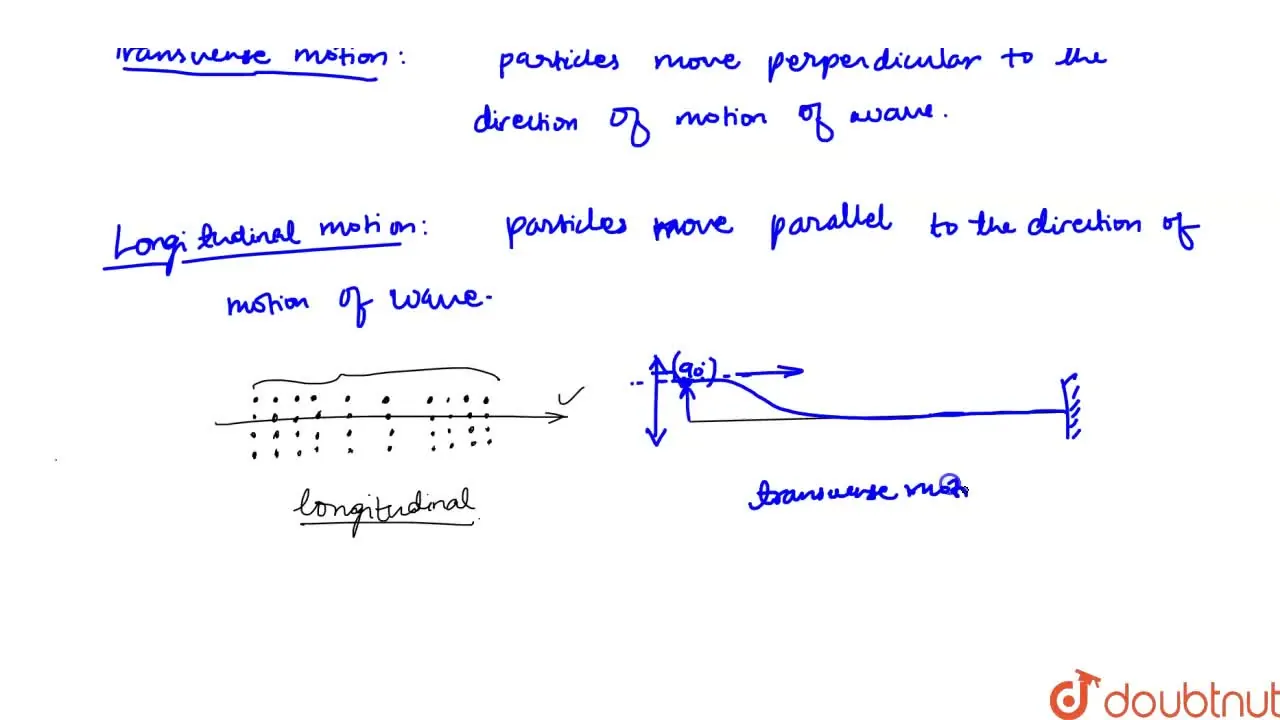 Transverse motion: particles move perpendicular to the
direction of motion of wave.
Longitudinal motion: particles move parallel to the direction of
motion of wave.
(90°)
longitudinal
transverse mot
doubtnut